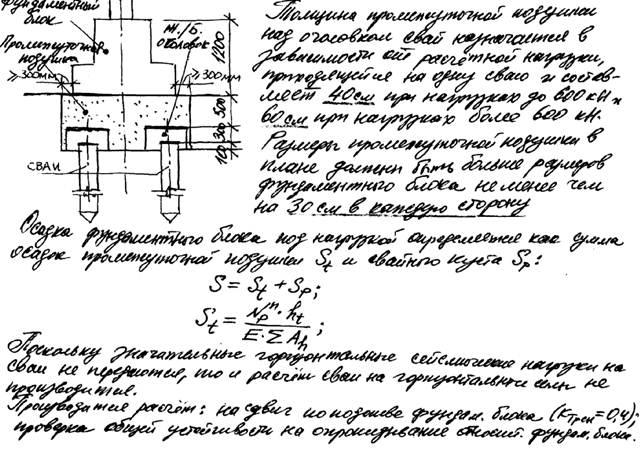 Фундаментный
блок
Промежуточная
подушка
Ж./Б.
оголовок
≥300мм
≥300мм
1200
500
300
100
СВАИ
Толщина промежуточной подушки
над оголовком свай назначается в
зависимости от расчётной нагрузки,
приходящейся на одну сваю и состав-
ляет 40см при нагрузках до 600 кН и
60см при нагрузках более 600 кН.
Размеры промежуточной подушки в
плане должны быть больше размеров
фундаментного блока не менее чем
на 30см в каждую сторону
Осадка фундаментного блока под нагрузкой определяется как сумма
осадок промежуточной подушки St и свайного куста Sp:
S = St + Sp;
St = Np^п · ht / E · ΣAh ;
Поскольку значительные горизонтальные сейсмические нагрузки на
сваи не передаются, то и расчёт сваи на горизонтальные силы не
производится.
Производится расчёт: на сдвиг по подошве фундам. блока (kтрен=0,4);
проверка общей устойчивости на опрокидывание относит. фундам. блока.